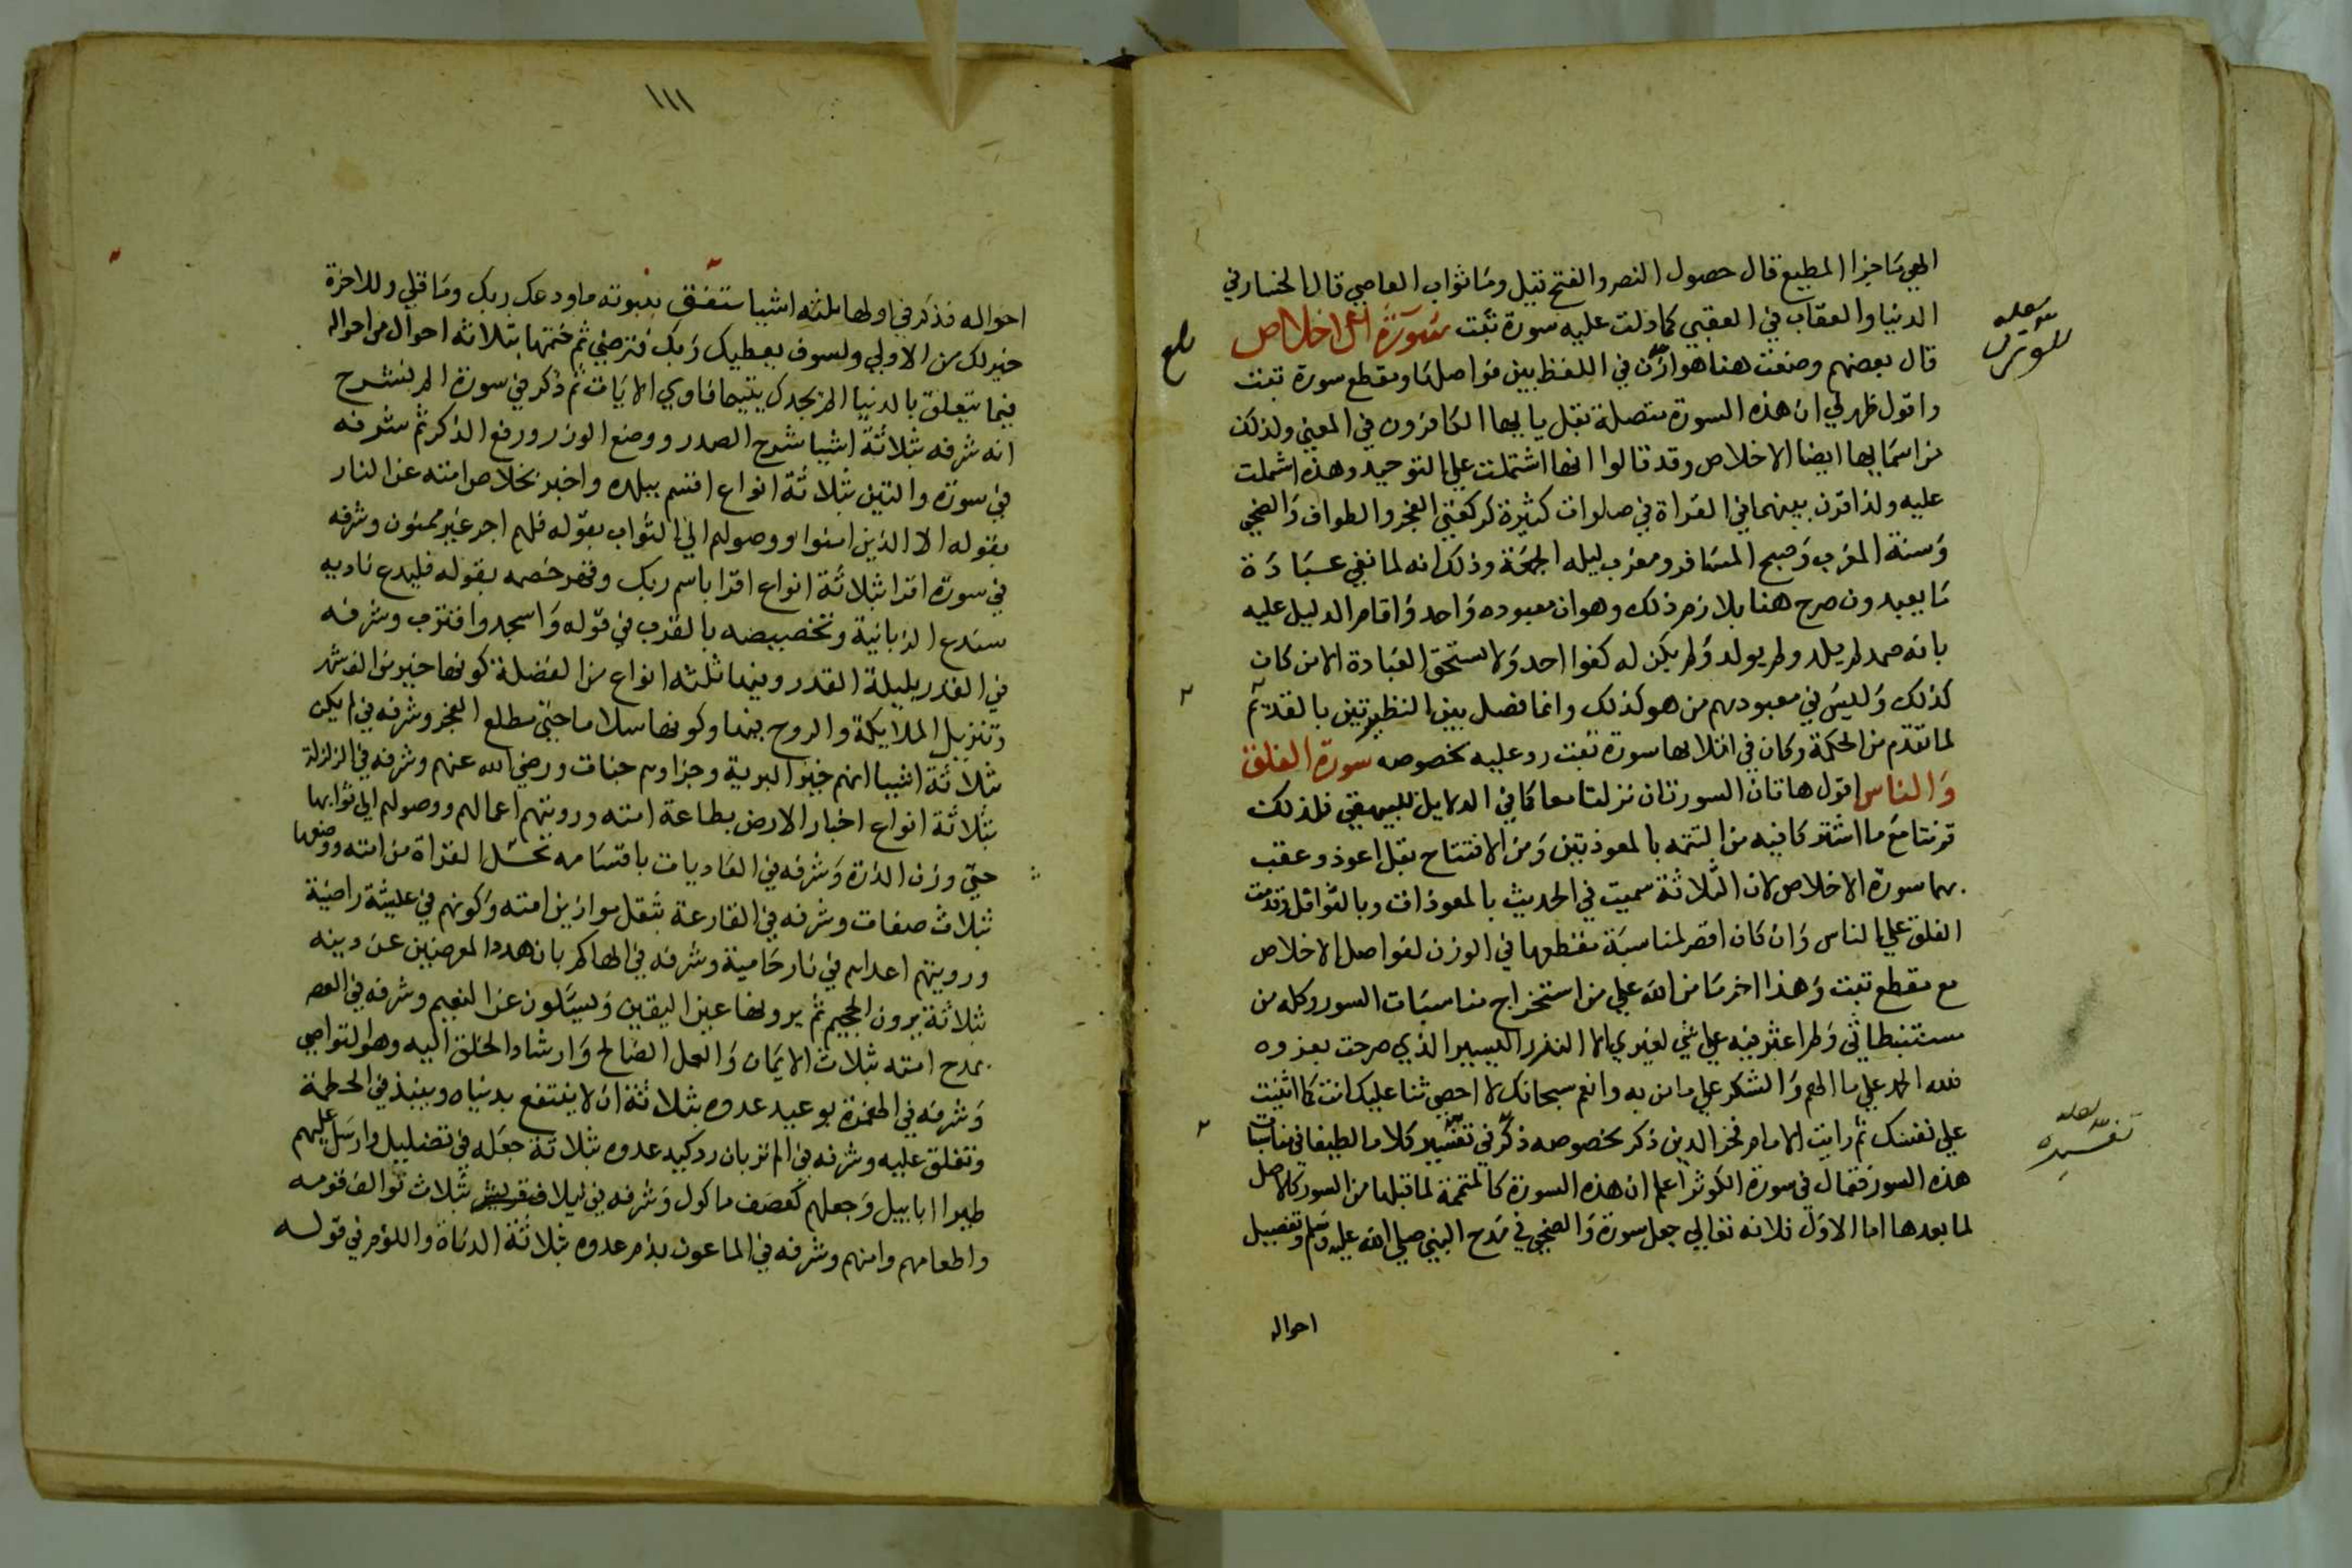 الهي ما جزا المطيع قال حصول النصر والفتح فقيل وما ثواب العاصي قال الخسار في
الدنيا والعقاب في العقبي كما دلت عليه سورة تبت سورة الاخلاص
قال بعضهم وضعت هنا هو ازن في اللفظ بين فواصلها ومقطع سورة تبت
واقول ظهر لي ان هذه السورة متصلة بقل يا ايها الكافرون في المعني ولذلك
من اسمايها ايضا الاخلاص وقد قالوا انها اشتملت علي التوحيد وهذه اشملت
عليه ولذا قرن بينهما في القراة في صلوات كثيرة كركعتي الفجر والطواف والضحي
وسنة المغرب وصبح المسافر ومغرب ليله الجمعة وذلك انه لما نفي عبادة
ما يعبدون صرح هنا بلازم ذلك وهو ان معبوده واحد واقام الدليل عليه
بانه صمد لم يلد ولم يولد ولم يكن له كفوا احد ولا يستحق العبادة الا من كان
كذلك وليس في معبودهم من هو كذلك وانما فصل بين النظيرتين بالقديم
لما تقدم من الحكمة وكان في ايلايها سورة تبت رد عليه بخصوصه سورة الفلق
والناس اقول هاتان السورتان نزلتا معا كما في الدلايل للبيهقي فلذلك
قرنتا مع ما اشتركا فيه من التسميه بالمعوذتين ومن الافتتاح بقل اعوذ وعقب
بهما سورة الاخلاص لان الثلاثة سميت في الحديث بالمعوذات وبالقواقل وقدمت
الفلق علي الناس وان كان اقصر لمناسبة مقطعها في الوزن لفواصل الاخلاص
مع مقطع تبت وهذا اخر ما من الله علي من استخراج مناسبات السور وكله من
مستنبطاتي ولم اعثر فيه علي شي لغيري الا النزر اليسير الذي صرحت بعزوه
فلله الحمد علي ما الهم والشكر علي ما من به وانعم سبحانك لا احصي ثنا عليك انت كما اثنيت
علي نفسك ثم رايت الامام فخر الدين ذكر بخصوصه ذكر في تفسير كلاما لطيفا في مناسبات
هذه السور فقال في سورة الكوثر اعلم ان هذه السورة كالمتممة لما قبلها من السور كالاصل
لما بعدها اما الاول فلانه تعالي جعل سورة والضحي في مدح النبي صلي الله عليه وسلم وتفصيل
احواله
بلغ
لعله
للتوازن
لعله
تفسيره
١١١
احواله فذكر في اولها ثلثه اشيا ستفق بنبوته ما ودعك ربك وما قلي وللاخرة
خير لك من الاولي ولسوف يعطيك ربك فترضي ثم ختمها بثلاثه احوال من احواله
فيما يتعلق بالدنيا الم يجدك يتيما فاوي الايات ثم ذكر في سورة الم نشرح
انه شرفه بثلاثة اشيا شرح الصدر ووضع الوزر ورفع الذكر ثم شرفه
في سورة والتين بثلاثة انواع اقسم ببلده واخبر بخلاص امته عن النار
بقوله الا الذين امنوا ووصولهم الي الثواب بقوله فلهم اجر غير ممنون وشرفه
في سورة اقرا بثلاثة انواع اقرا باسم ربك وقهر خصمه بقوله فليدع ناديه
سندع الزبانية وتخصيصه بالقرب في قوله واسجد واقترب وشرفه
في القدر بليلة القدر وفيها ثلثه انواع من الفضلة كونها خير من الف شهر
وتنزيل الملايكة والروح فيها وكونها سلاما حتي مطلع الفجر وشرفه في لم يكن
بثلاثة اشيا انهم خير البرية وجزاوهم جنات ورضي الله عنهم وشرفه في الزلزلة
بثلاثة انواع اخبار الارض بطاعة امته ورويتهم اعمالهم ووصولهم الي ثوابها
حتي وزن الذرة وشرفه في العاديات باقسامه بخيل الغزاة من امته ووصفها
بثلاث صفات وشرفه في القارعة بثقل موازين امته وكونهم في عيشة راضية
ورويتهم اعداهم في نار حامية وشرفه في الهاكم بان هدد المعرضين عن دينه
بثلاثة يرون الجحيم ثم يرونها عين اليقين ويسئلون عن النعيم وشرفه في العصر
بمدح امته بثلاث الايمان والعمل الصالح وارشاد الخلق اليه وهو التواصي
وشرفه في الهمزة بوعيد عدوه بثلاثة ان لا ينتفع بدنياه وينبذ في الحطمة
وتغلق عليه وشرفه في الم تر بان رد كيد عدوه بثلاثة جعله في تضليل وارسل عليهم
طيرا ابابيل وجعلهم كعصف ماكول وشرفه في ليلاف قريش بثلاث توالف قومه
واطعامهم وامنهم وشرفه في الماعون بذم عدوه بثلاثة الدناة واللوم في قوله